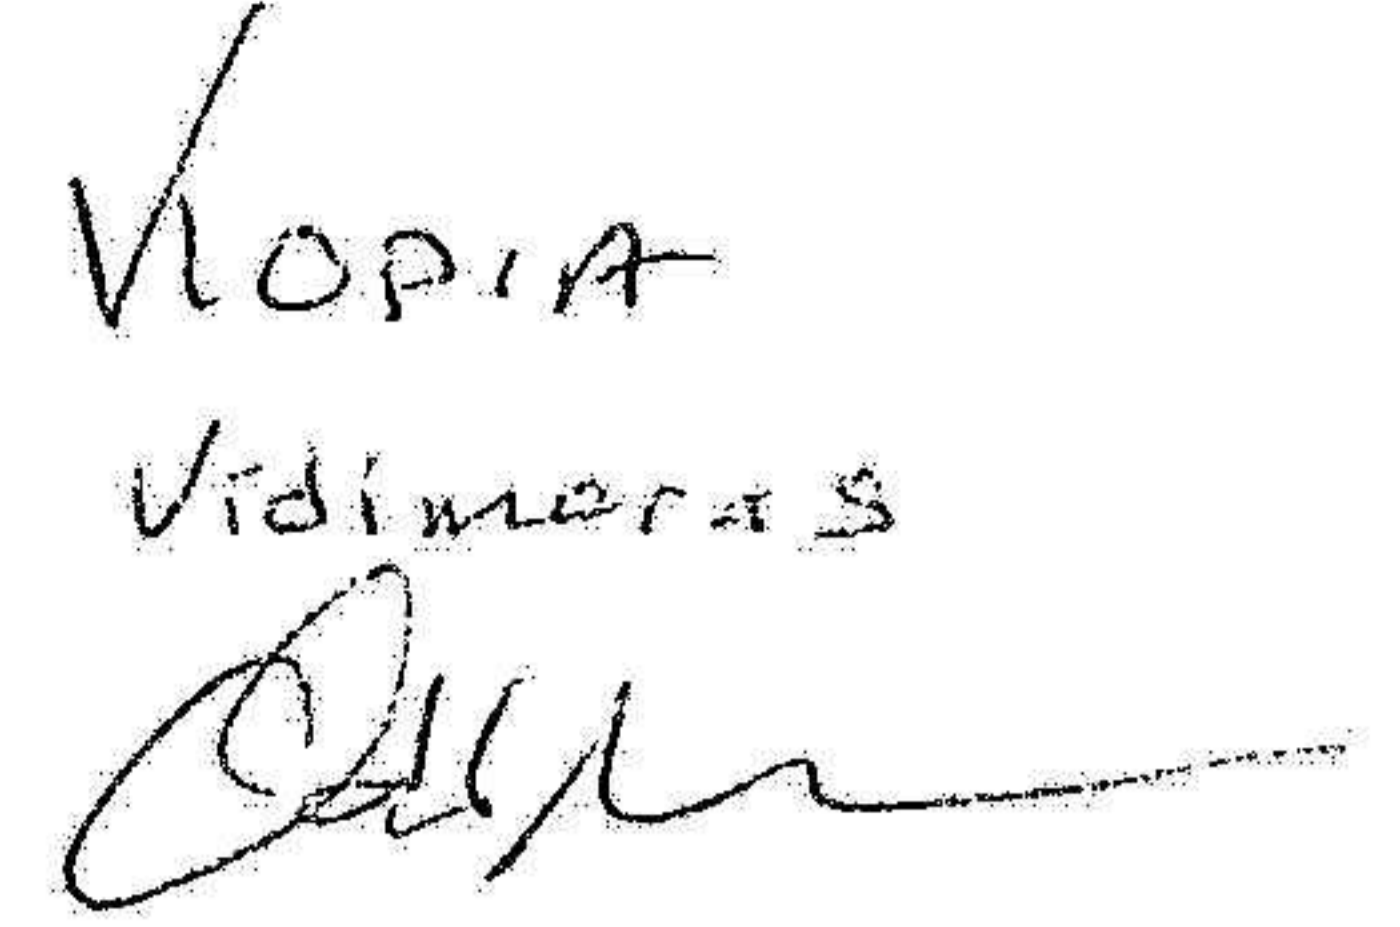 KOPIA
Vidimeras